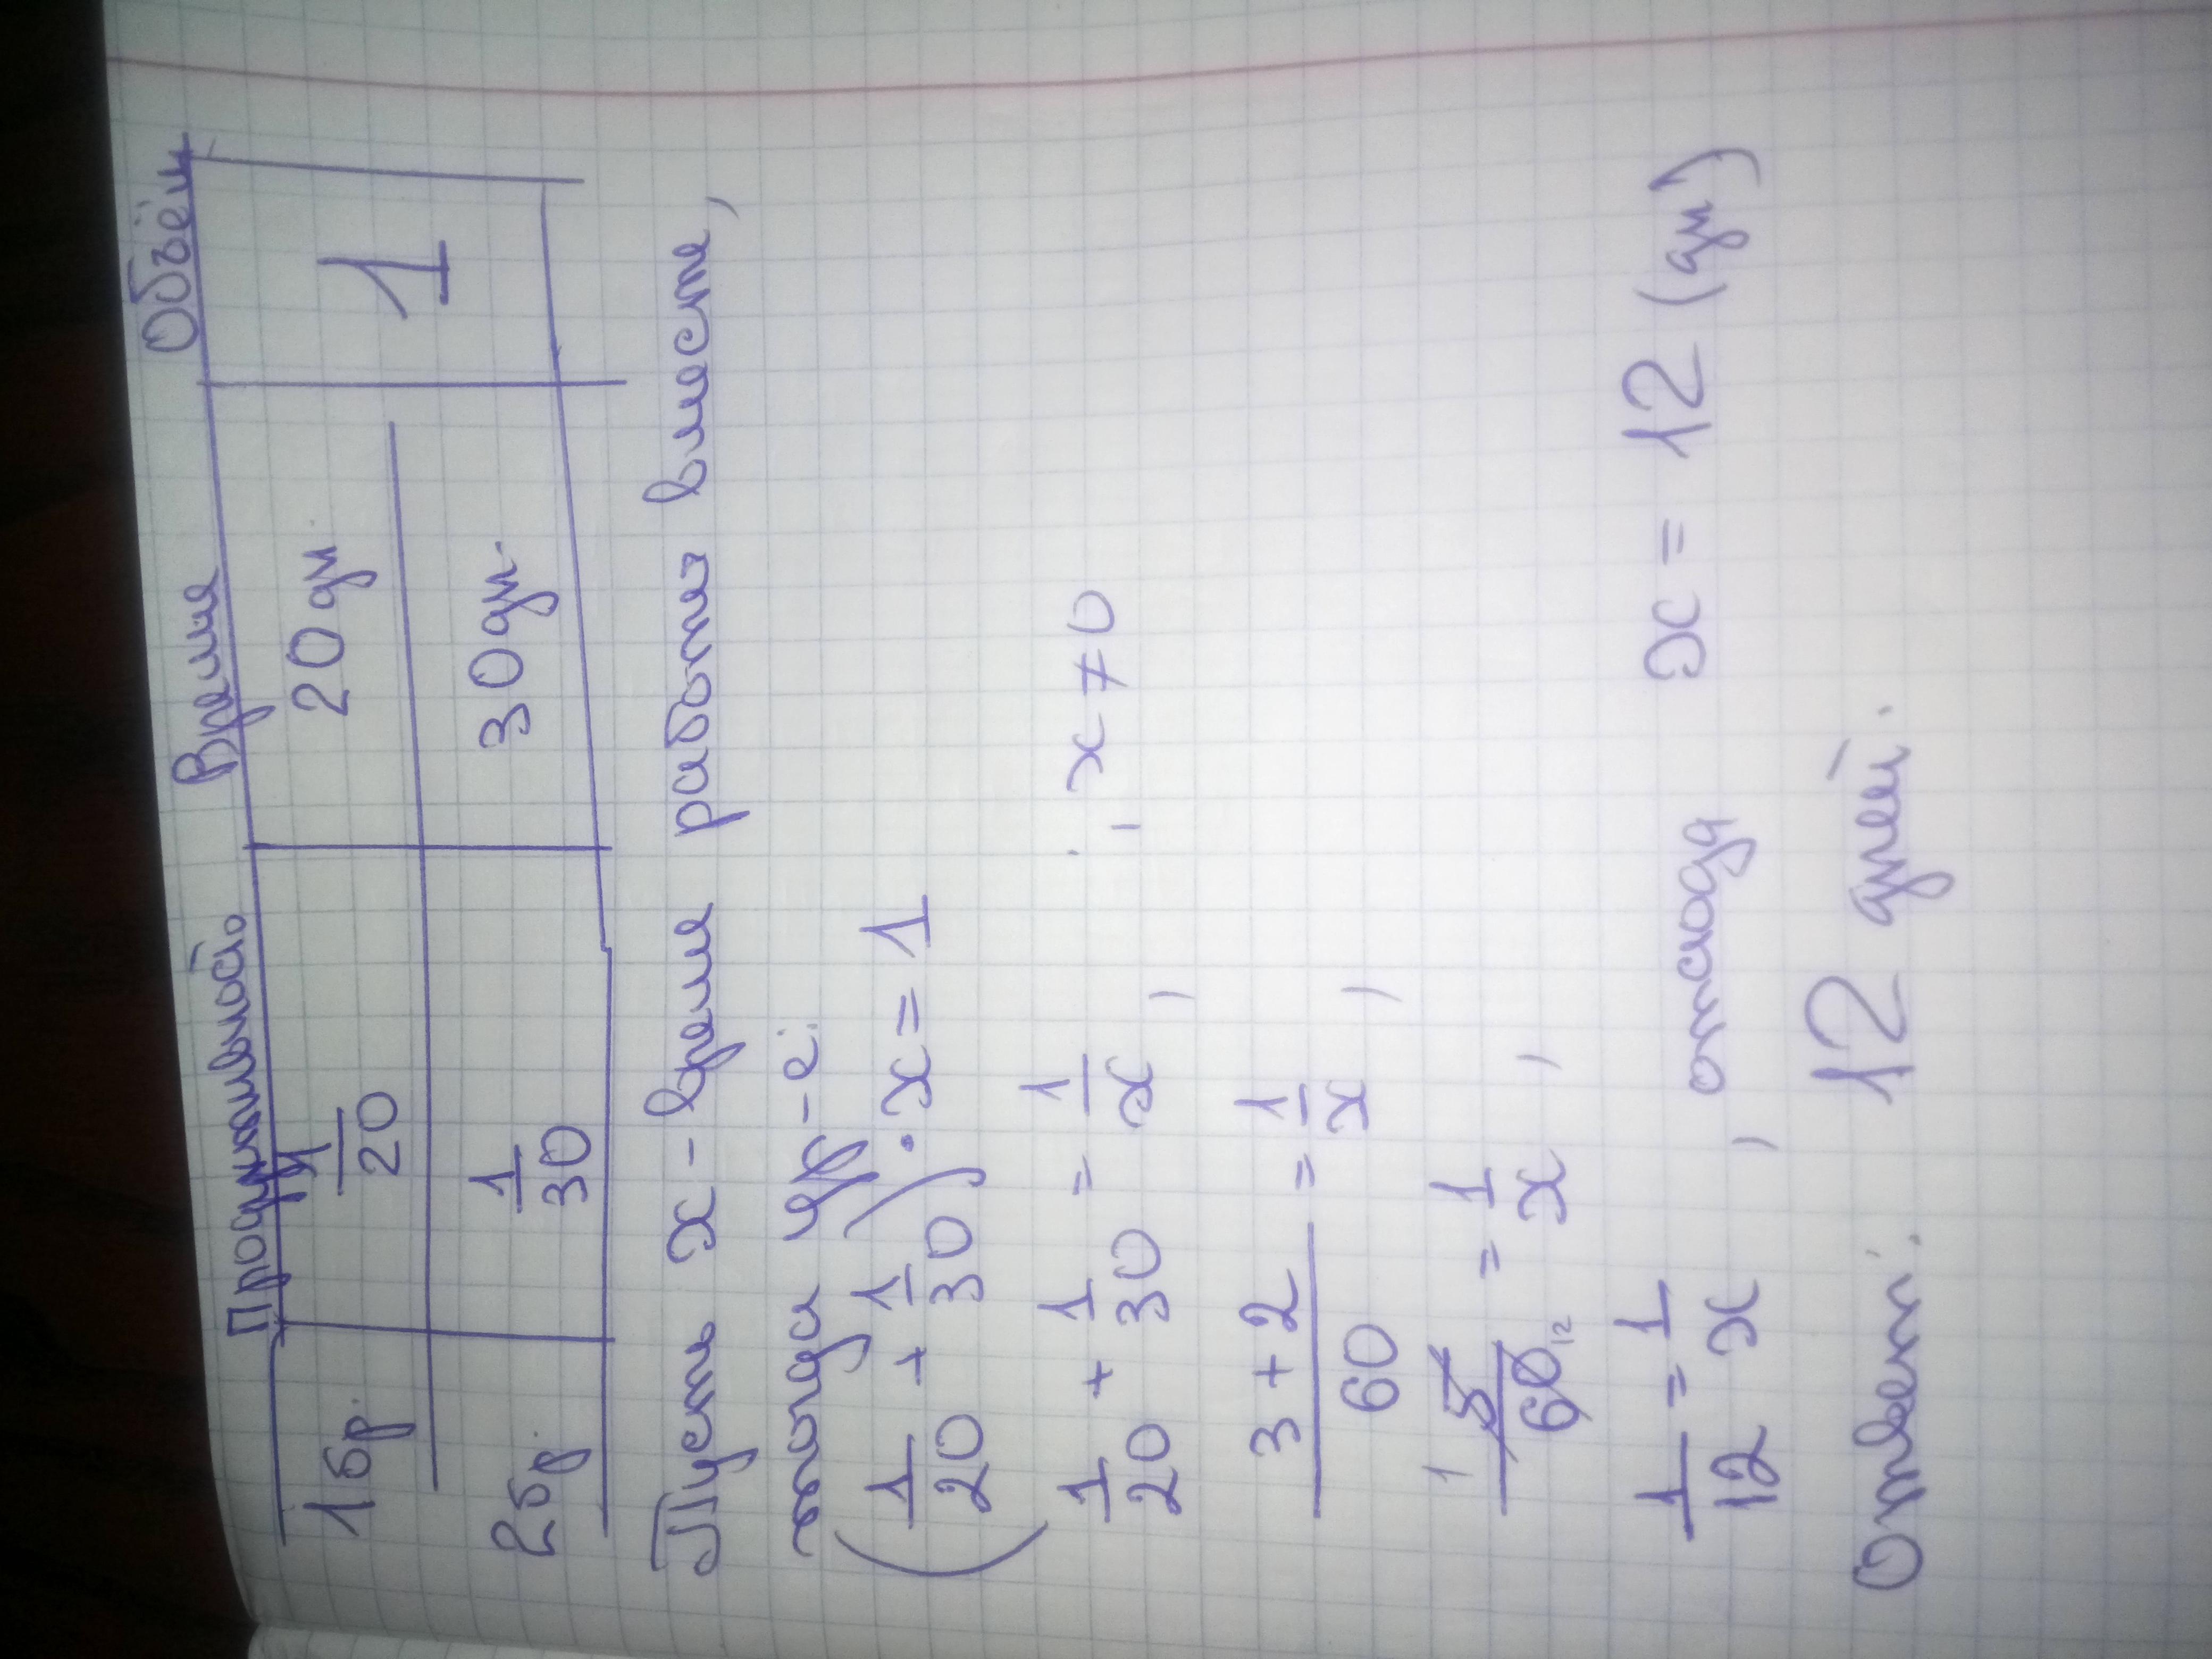 Продуктивность Время Объём
1 бр. 1/20 20 дн 1
2 бр. 1/30 30 дн.
Пусть x - время работы вместе,
тогда ур-е:
(1/20 + 1/30) · x = 1
1/20 + 1/30 = 1/x, x ≠ 0
3 + 2/60 = 1/x,
1 5/60 12 = 1/x,
1/12 = 1/x, отсюда x = 12 (дн)
Ответ: 12 дней.